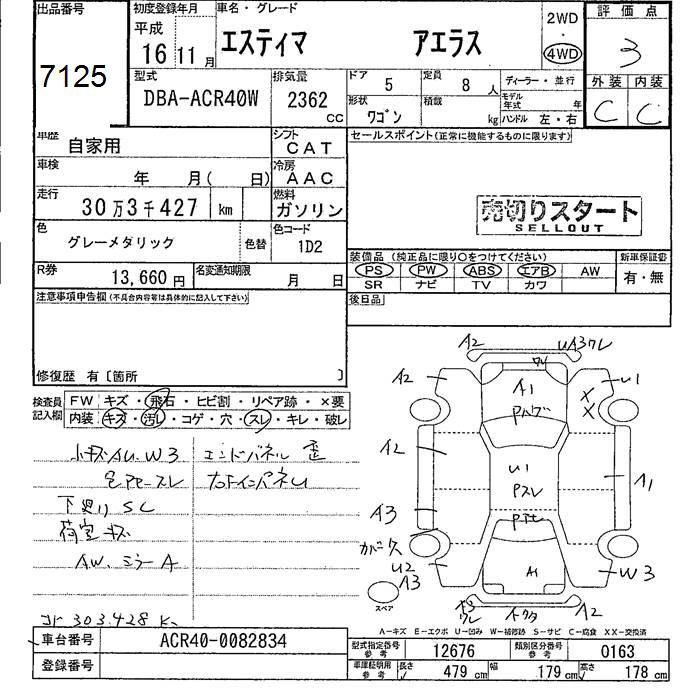 出品番号
7125
初度登録年月
平成
16 11月
車名・グレード
エスティマ アエラス
2WD
4WD
評価点
3
外装 内装
C C
型式
DBA-ACR40W
排気量
2362
CC
ドア
5
定員
8人
ディーラー・並行
形状
ワゴン
積載
kg
モデル年式 年
ハンドル 左・右
車歴
自家用
シフト
CAT
車検
年 月( 日)
冷房
AAC
走行
30万3千427 km
燃料
ガソリン
色
グレーメタリック
色替
色コード
1D2
R券
13,660円
名変通知期限
月 日
セールスポイント(正常に機能するものに限ります)
売切りスタート
SELLOUT
装備品(純正品に限り○をつけてください)
PS PW ABS エアB AW
SR ナビ TV カワ
新車保証書
有・無
後日品
注意事項申告欄(不具合内容等は具体的に記入して下さい)
修復歴 有〔箇所 〕
検査員記入欄
FW キズ・飛石・ヒビ割・リペア跡・×要
内装 キズ・汚レ・コゲ・穴・スレ・キレ・破レ
小キズ A.U.W3
エンドパネル 歪
下廻り SC
荷室 キズ
A.W. ミラーA
コド 303.428 K
A2
UA3ワレ
ワレ
A2
A1
U1
X
X
A2
U1
Pスレ
A1
A3
カバー欠
U2
A3
A1
W3
スペア
A3
ワレ
A2
A-キズ E-エクボ U-凹み W-補修跡 S-サビ C-腐食 XX-交換済
車台番号
ACR40-0082834
登録番号
型式指定番号
参考
12676
類別区分番号
参考
0163
車庫証明用
参考
長さ
479 cm
幅
179 cm
高さ
178 cm